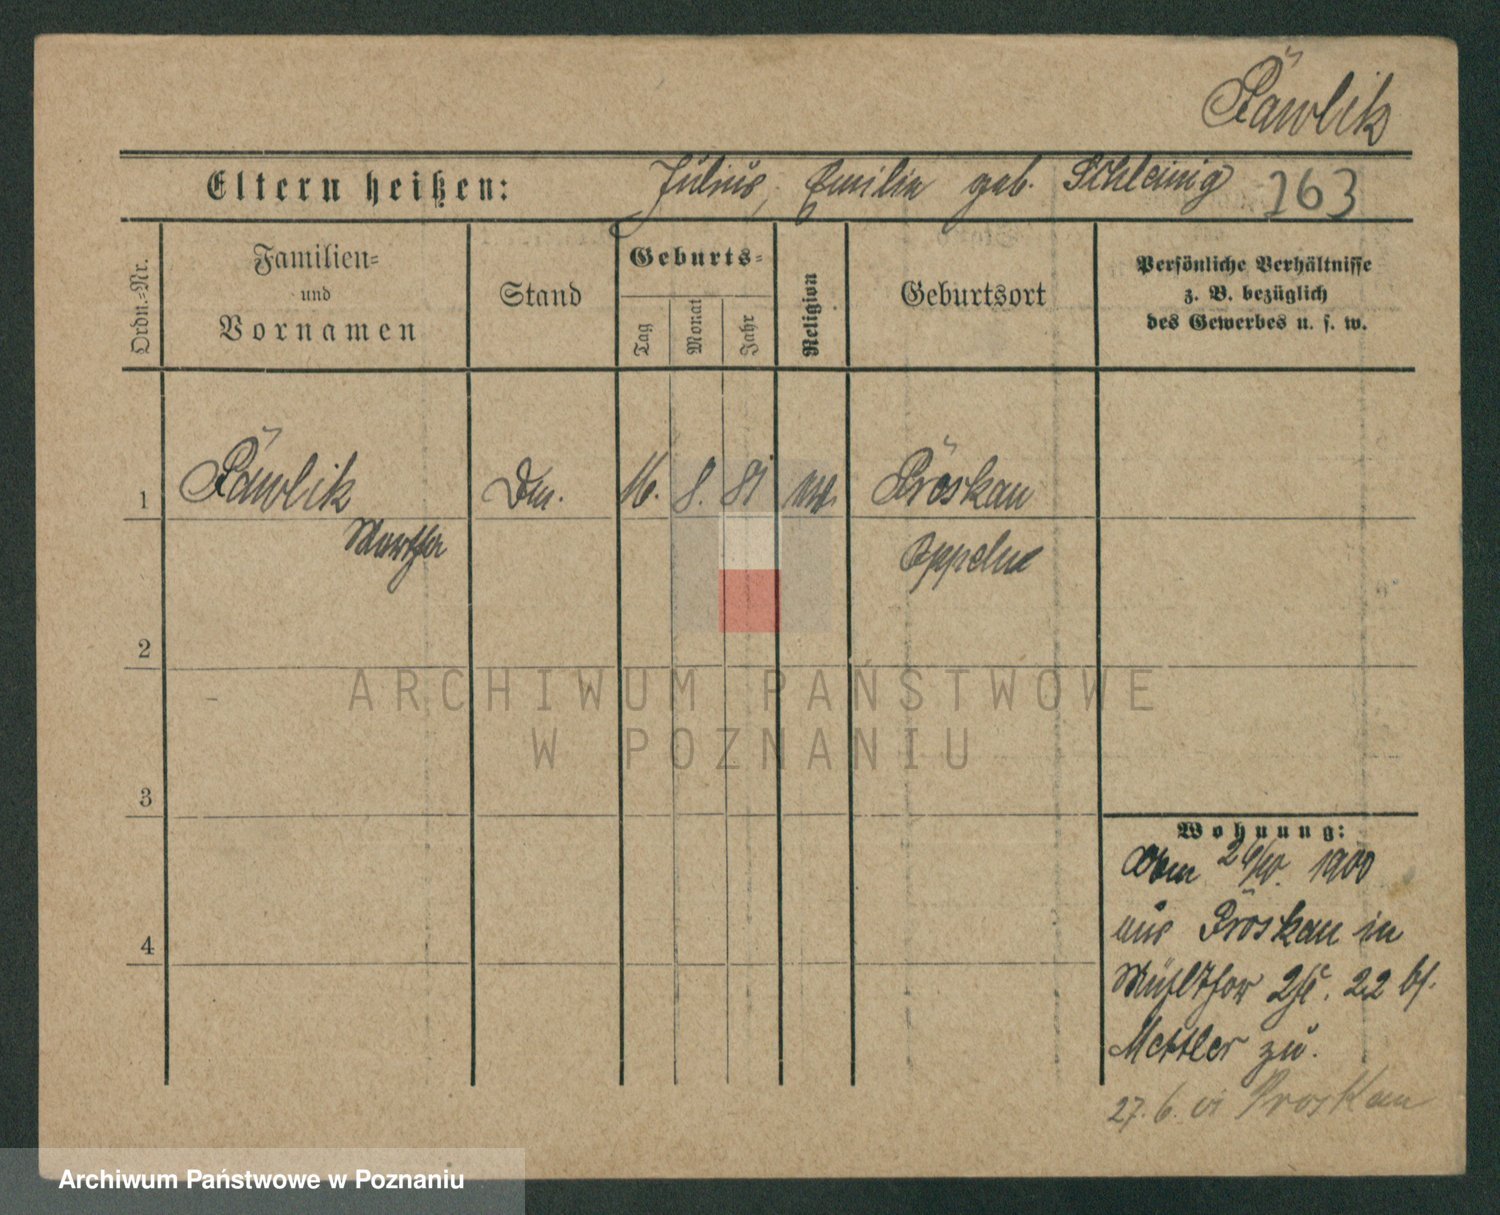 Pawlik
Eltern heißen: Julius, Emilie geb. Schleinig 163
Ordn.-Nr.
Familien-
und
Vornamen
Stand
Geburts-
Tag
Monat
Jahr
Religion
Geburtsort
Persönliche Verhältnisse
z. B. bezüglich
des Gewerbes u. s. w.
1 Pawlik 16. 8. 81 Proskau
Martha Oppeln
2
3
4
ARCHIWUM PAŃSTWOWE
W POZNANIU
Wohnung:
1900
aus Proskau in
22 bei
Mettler zu.
27. 6. 01 Proskau
Archiwum Państwowe w Poznaniu